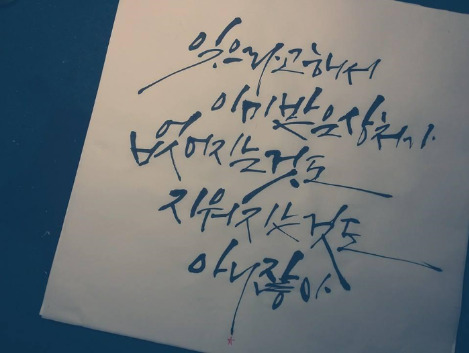 잊으라고해서
이미받은상처가
없어지는것도
지워지는것도
아니잖아.